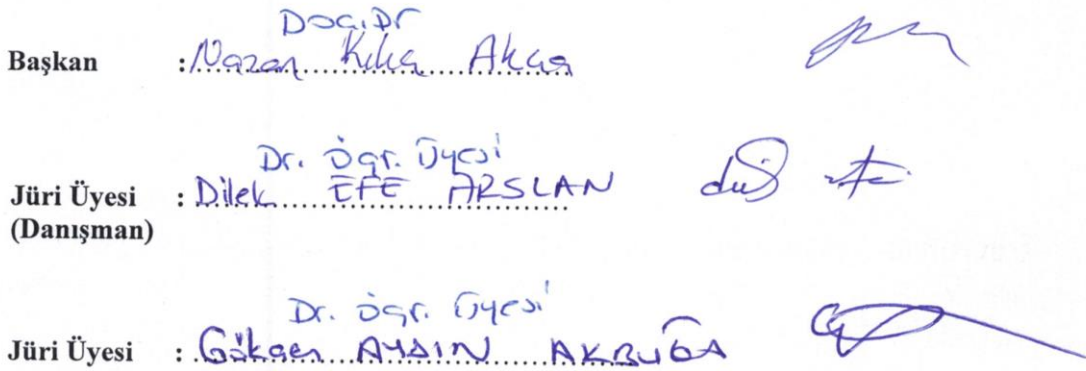 Doç.Dr
Başkan : Nazan Kılıç Akça
Dr. Öğr. Üyesi
Jüri Üyesi : Dilek EFE ARSLAN
(Danışman)
Dr. Öğr. Üyesi
Jüri Üyesi : Gökçen AYDIN AKBUĞA